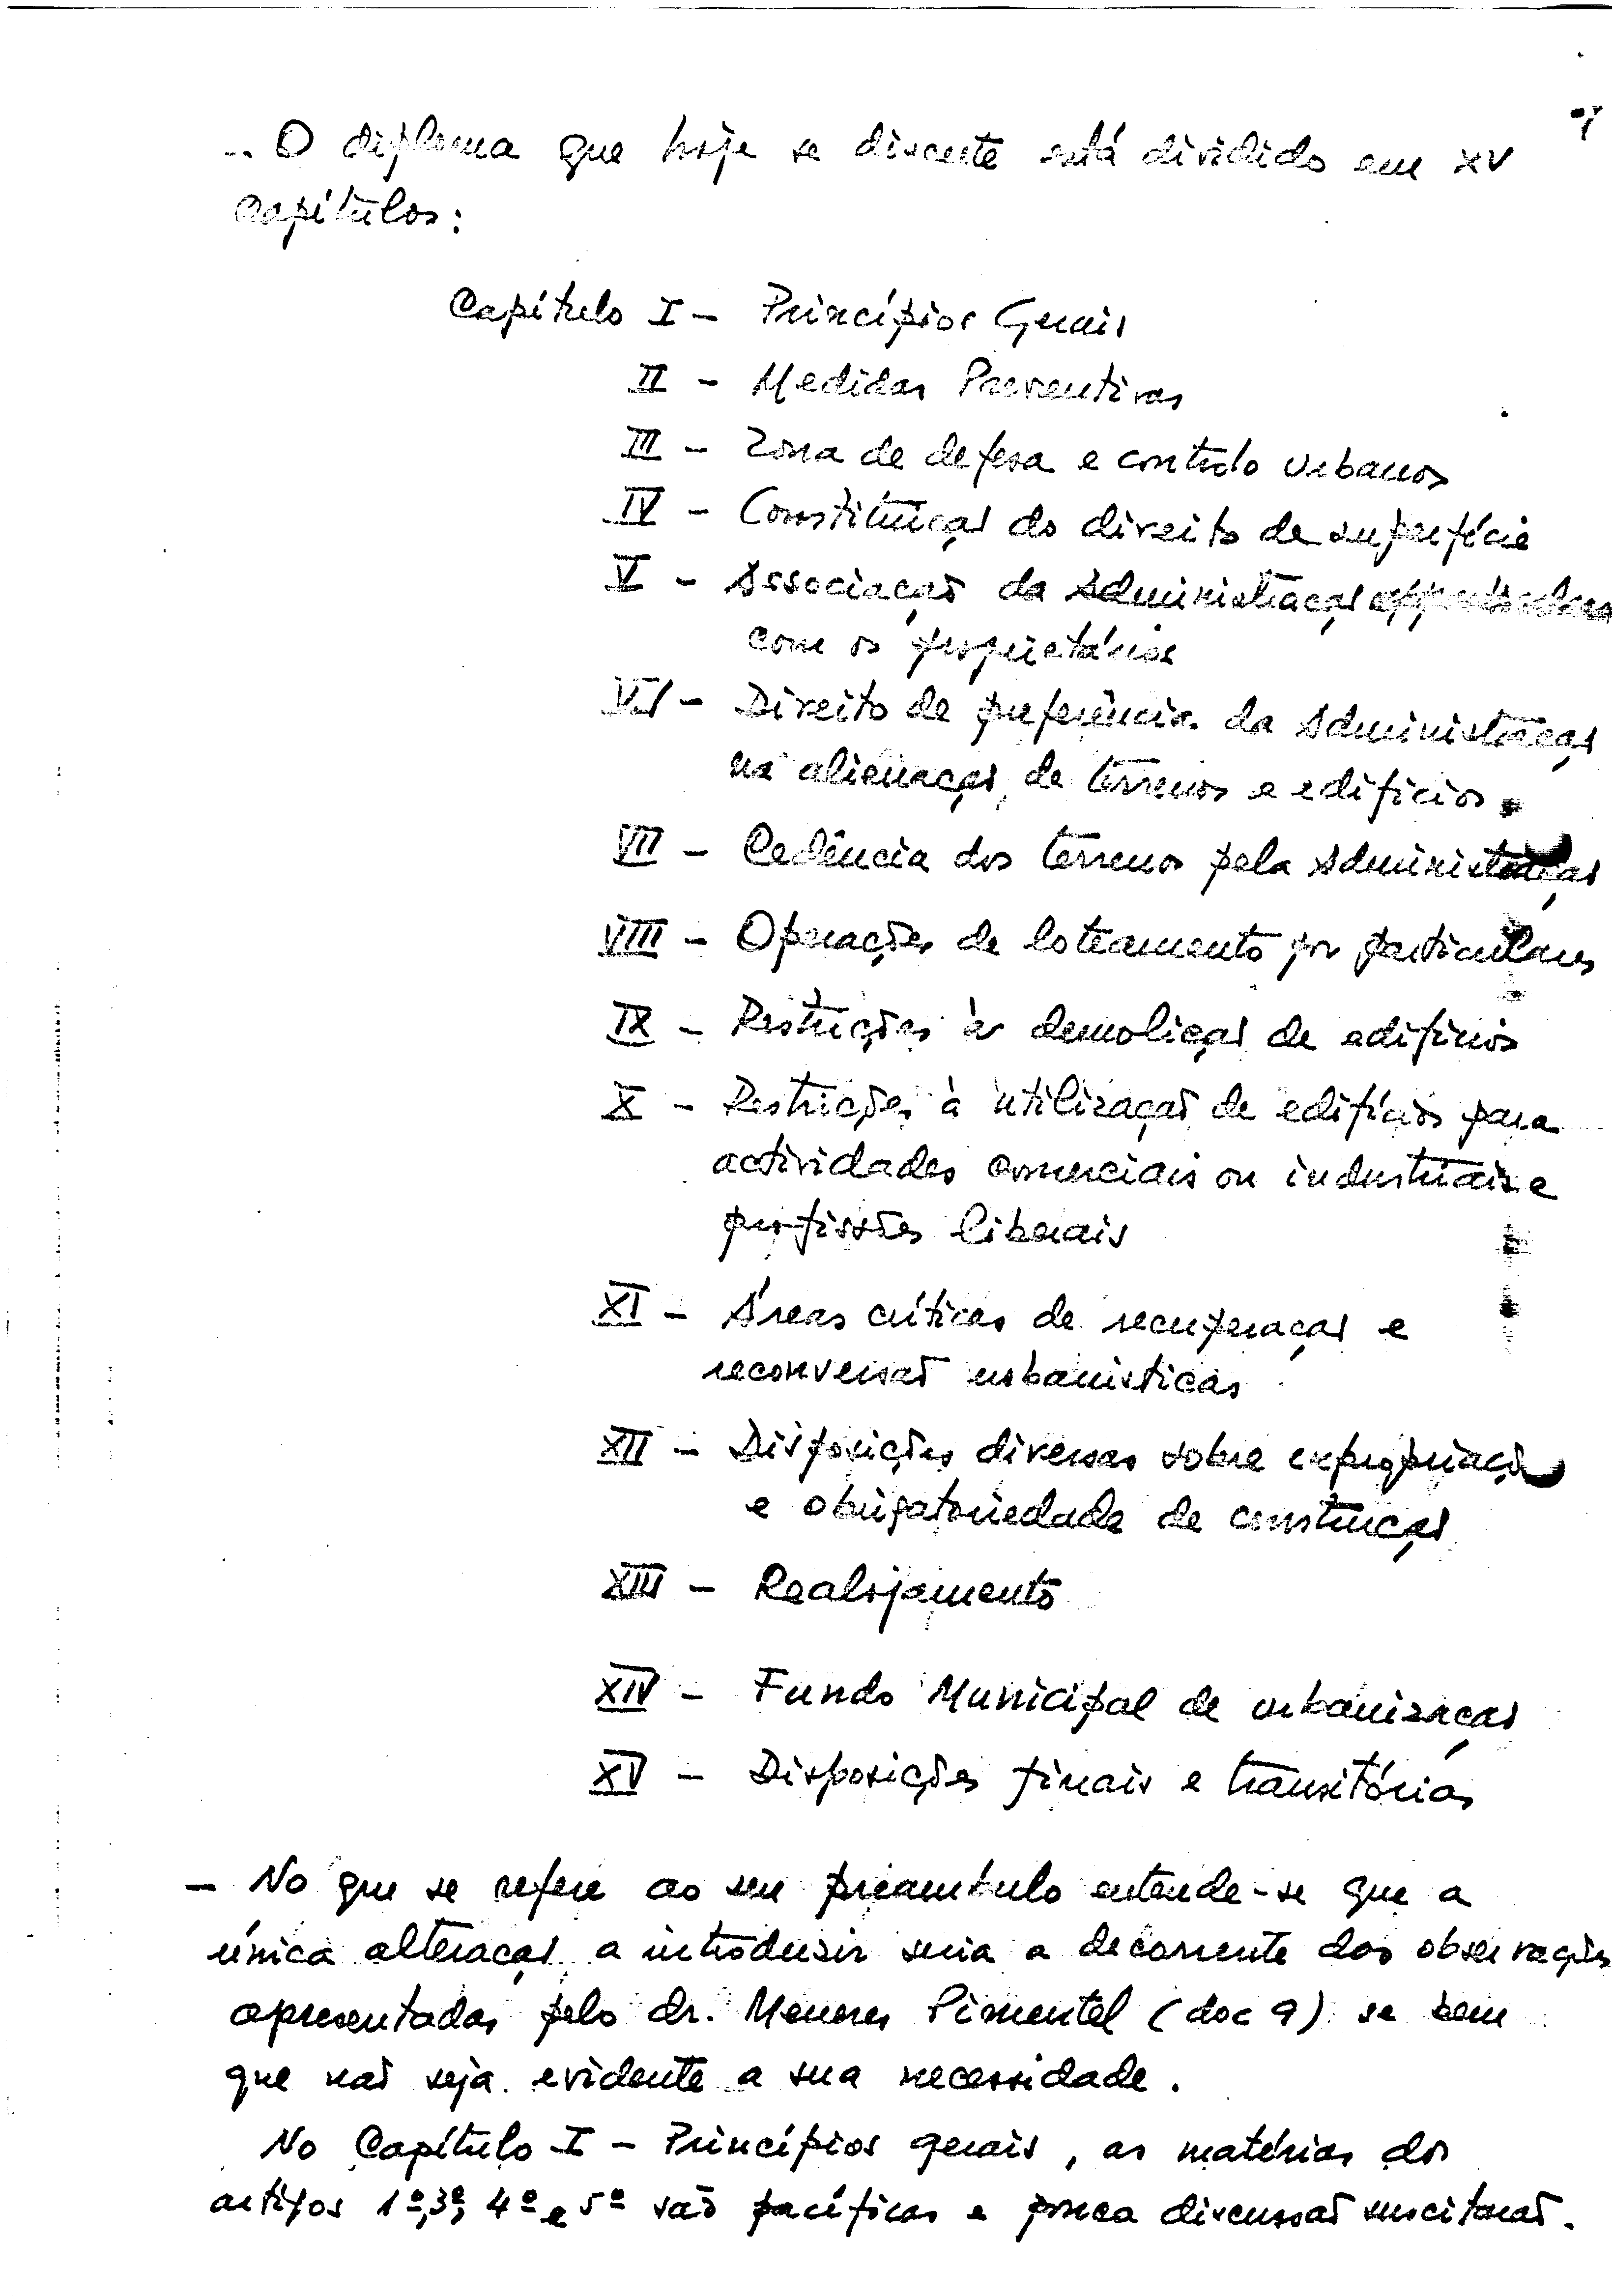 - O diploma que hoje se discute está dividido em XV
Capítulos:
Capítulo I - Princípios Gerais
II - Medidas Preventivas
III - Zona de defesa e controlo urbanos
IV - Constituição do direito de superfície
V - Associação da Administração
com os proprietários
VI - Direito de preferência da Administração
na alienação de terrenos e edifícios.
VII - Cedência dos terrenos pela Administração
VIII - Operações de loteamento por particulares
IX - Restrições à demolição de edifícios
X - Restrições à utilização de edifícios para
actividades comerciais ou industriais e
profissões liberais
XI - Áreas críticas de recuperação e
reconversão urbanísticas
XII - Disposições diversas sobre expropriação
e obrigatoriedade de construção
XIII - Realojamento
XIV - Fundo Municipal de urbanização
XV - Disposições finais e transitórias
- No que se refere ao seu preâmbulo entende-se que a
única alteração a introduzir seria a decorrente das observações
apresentadas pelo dr. Meneres Pimentel (doc 9) se bem
que não seja evidente a sua necessidade.
No Capítulo I - Princípios gerais, as matérias dos
artigos 1º, 3º, 4º e 5º são pacíficas e pouca discussão suscitarão.